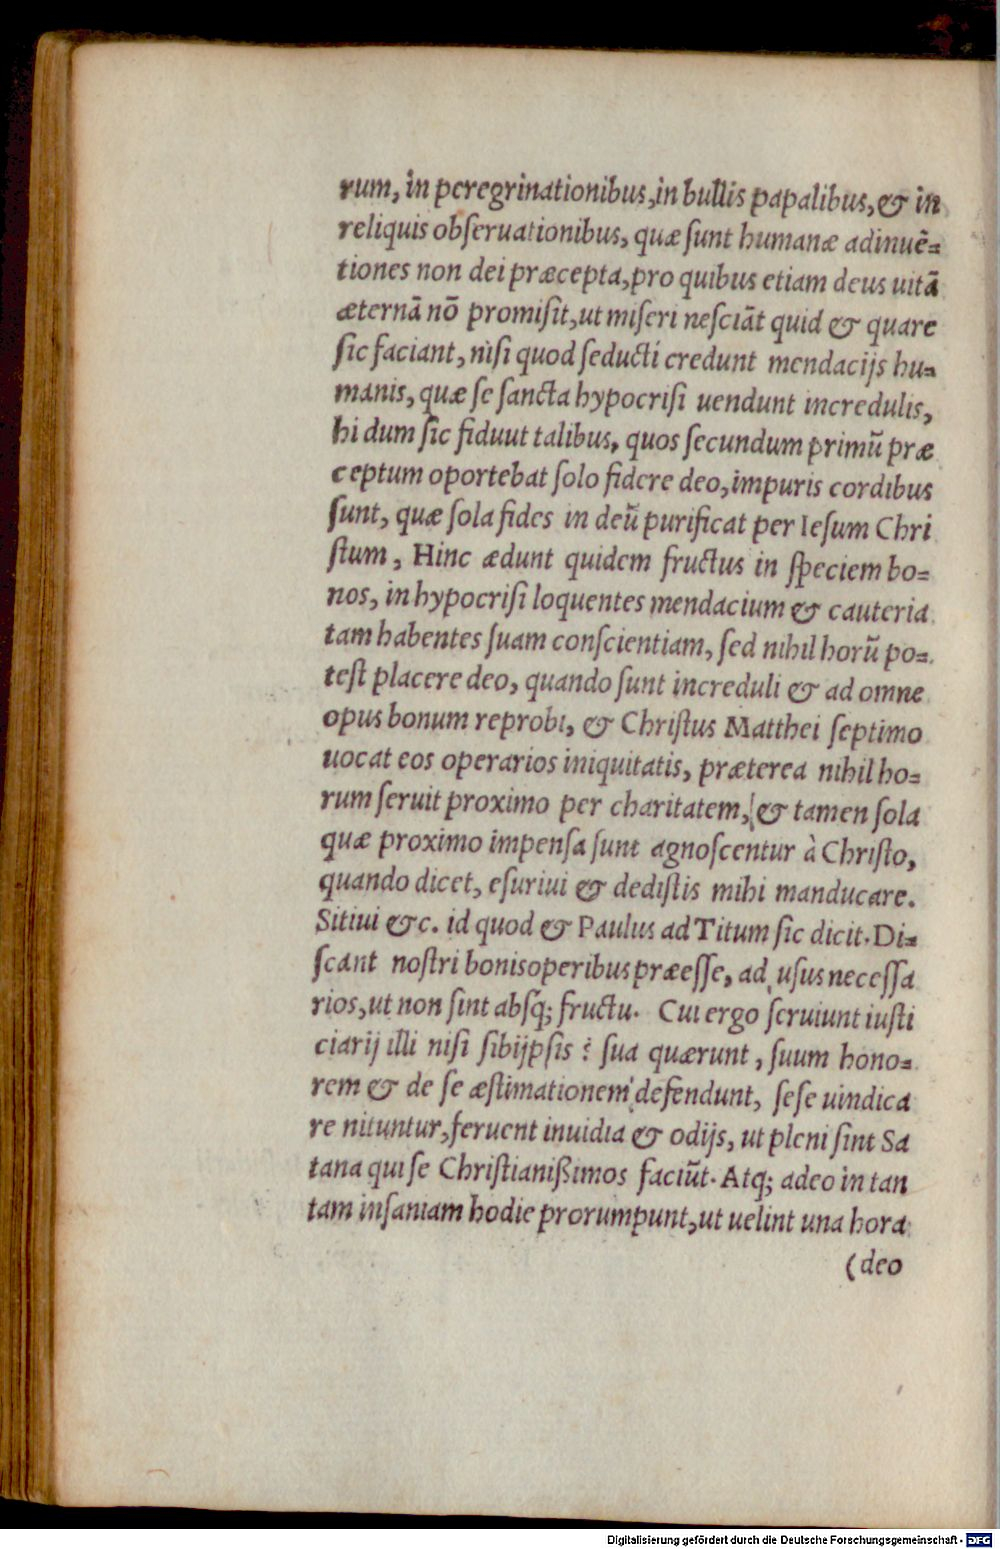 rum, in peregrinationibus, in bullis papalibus, & in
reliquis obſeruationibus, quæ ſunt humanæ adinuē-
tiones non dei præcepta, pro quibus etiam deus uitā
æternā nō promiſit, ut miſeri neſciāt quid & quare
ſic faciant, niſi quod ſeducti credunt mendacijs hu-
manis, quæ ſe ſancta hypocriſi uendunt incredulis,
hi dum ſic fiduut talibus, quos ſecundum primū præ
ceptum oportebat ſolo fidere deo, impuris cordibus
ſunt, quæ ſola fides in deū purificat per Ieſum Chri
ſtum, Hinc ædunt quidem fructus in ſpeciem bo-
nos, in hypocriſi loquentes mendacium & cauteria
tam habentes ſuam conſcientiam, ſed nihil horū po-
teſt placere deo, quando ſunt increduli & ad omne
opus bonum reprobi, & Chriſtus Matthei ſeptimo
uocat eos operarios iniquitatis, præterea nihil ho-
rum ſeruit proximo per charitatem, & tamen ſola
quæ proximo impenſa ſunt agnoſcentur à Chriſto,
quando dicet, eſuriui & dediſtis mihi manducare.
Sitiui &c. id quod & Paulus ad Titum ſic dicit. Di-
ſcant noſtri bonis operibus præeſſe, ad uſus neceſſa
rios, ut non ſint abſq; fructu. Cui ergo ſeruiunt iuſti
ciarij illi niſi ſibijpſis? ſua quærunt, ſuum hono-
rem & de ſe æſtimationem defendunt, ſeſe uindica
re nituntur, feruent inuidia & odijs, ut pleni ſint Sa
tana qui ſe Chriſtianißimos faciūt. Atq; adeo in tan
tam inſaniam hodie prorumpunt, ut uelint una hora
(deo
Digitalisierung gefördert durch die Deutsche Forschungsgemeinschaft - DFG